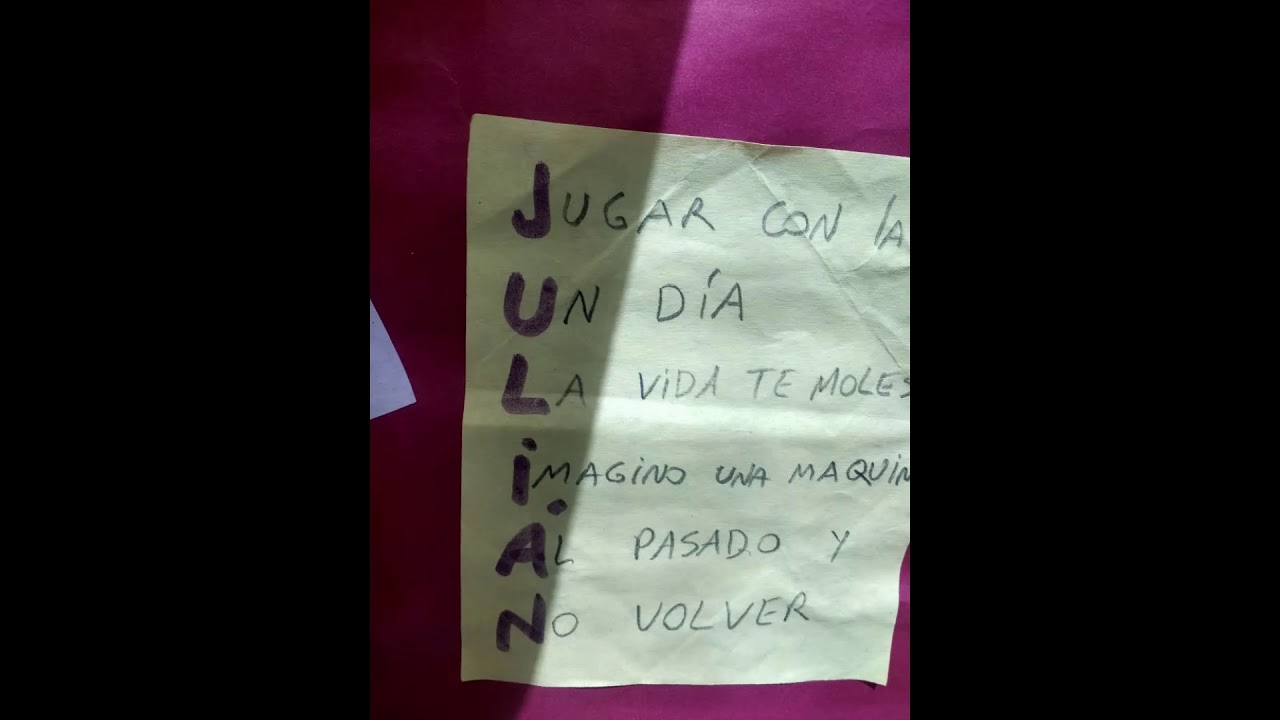 JUGAR CON la
UN DÍA
LA ViDA TE MOLES
iMAGiNO UNA MAQUIN
ÁL PASADO Y
NO VOLVER